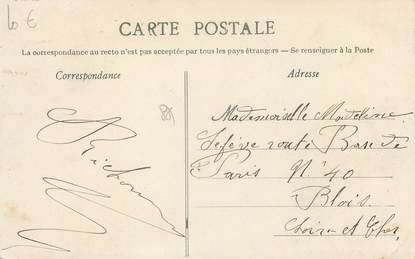 6 €
CARTE POSTALE
La correspondance au recto n'est pas acceptée par tous les pays étrangers — Se renseigner à la Poste
Correspondance
Adresse
Mademoiselle Madeleine
Lefèvre route Basse de
Paris N° 40
Blois
Loir et Cher